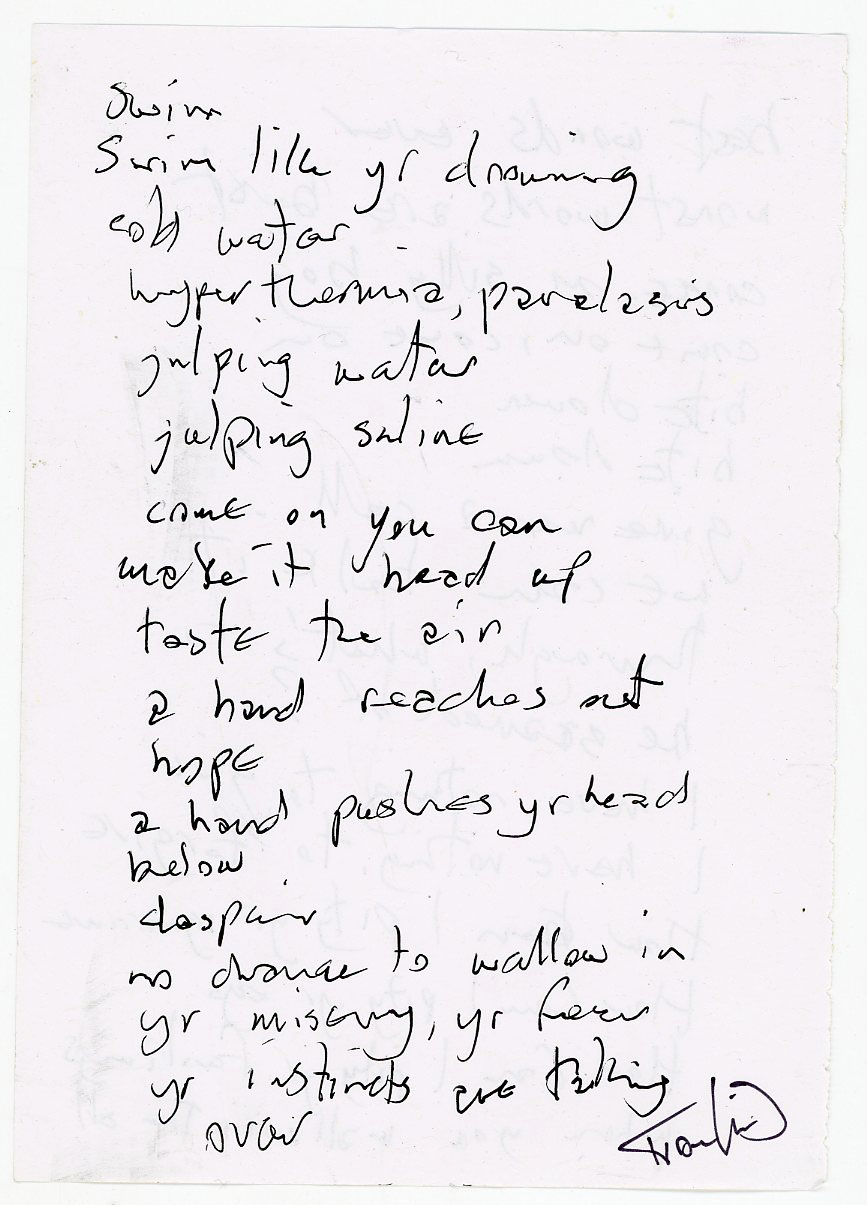 Swim
Swim like yr drowning
cold water
hyperthermia, paralasis
julping water
julping saline
come on you can
make it head up
taste the air
a hand reaches out
hope
a hand pushes yr head
below
despair
no chance to wallow in
yr misery, yr fear
yr instincts are taking
over